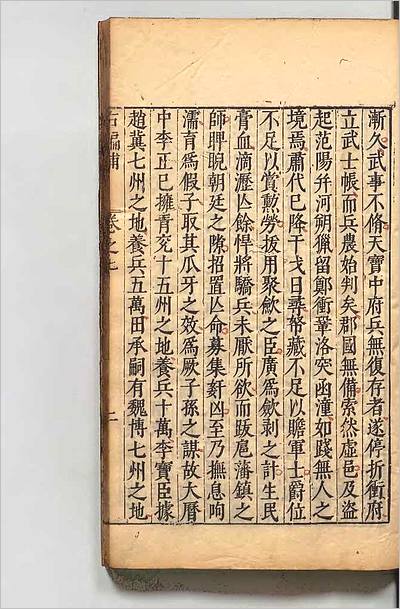 漸久武事不脩天寶中府兵無復存者遂停折衝府
立武士帳而兵農始判矣郡國無備索然虛邑及盜
起范陽弁河朔獵留鄭衝鞏洛突函潼如踐無人之
境焉肅代已降干戈日尋帑藏不足以贍軍士爵位
不足以賞勲勞拔用聚歛之臣廣爲歛剥之計生民
膏血滴瀝亾餘悍將驕兵未厭所欲而跋扈藩鎮之
師睥睨朝廷之隙招置亾命募集姧凶至乃撫息呴
濡育爲假子取其瓜牙之效爲厥子孫之謀故大曆
中李正已擁青兖十五州之地養兵十萬李寶臣據
趙冀七州之地養兵五萬田承嗣有魏博七州之地
右編補 卷之七 二